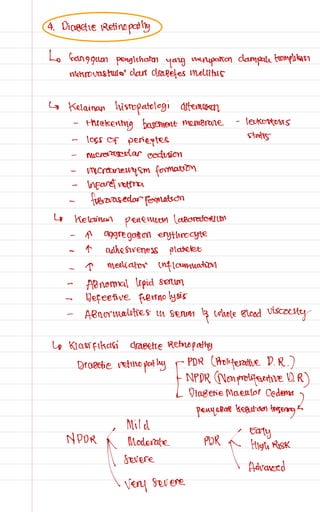 4. Diabetic Retinopathy
↳ Gangguan penglihatan yang merupakan dampak komplikasi
mikrovaskular dari diabetes mellitus
↳ Kelainan histopatologi ditemukan
- thickening basement membrane - leukostosis
- loss of pericytes stasis
- microvascular occlusion
- microaneurysm formation
- Infarct retina
- fibrovascular formation
↳ Kelainan penemuan laboratorium
- ↑ aggregation erythrocyte
- ↑ adhesiveness platelet
- ↑ mediator inflammation
- Abnormal lipid serum
- Defective fibrinolysis
- Abnormalities in serum & whole blood viscosity
↳ Klasifikasi diabetic Retinopathy
Diabetic retinopathy PDR (Proliferative D.R.)
NPDR (Nonproliferative D.R)
Diabetic Macular Oedema
penyebab kebutaan tersering
NPDR Mild
Moderate
Severe
Very Severe
PDR Early
High Risk
Advanced